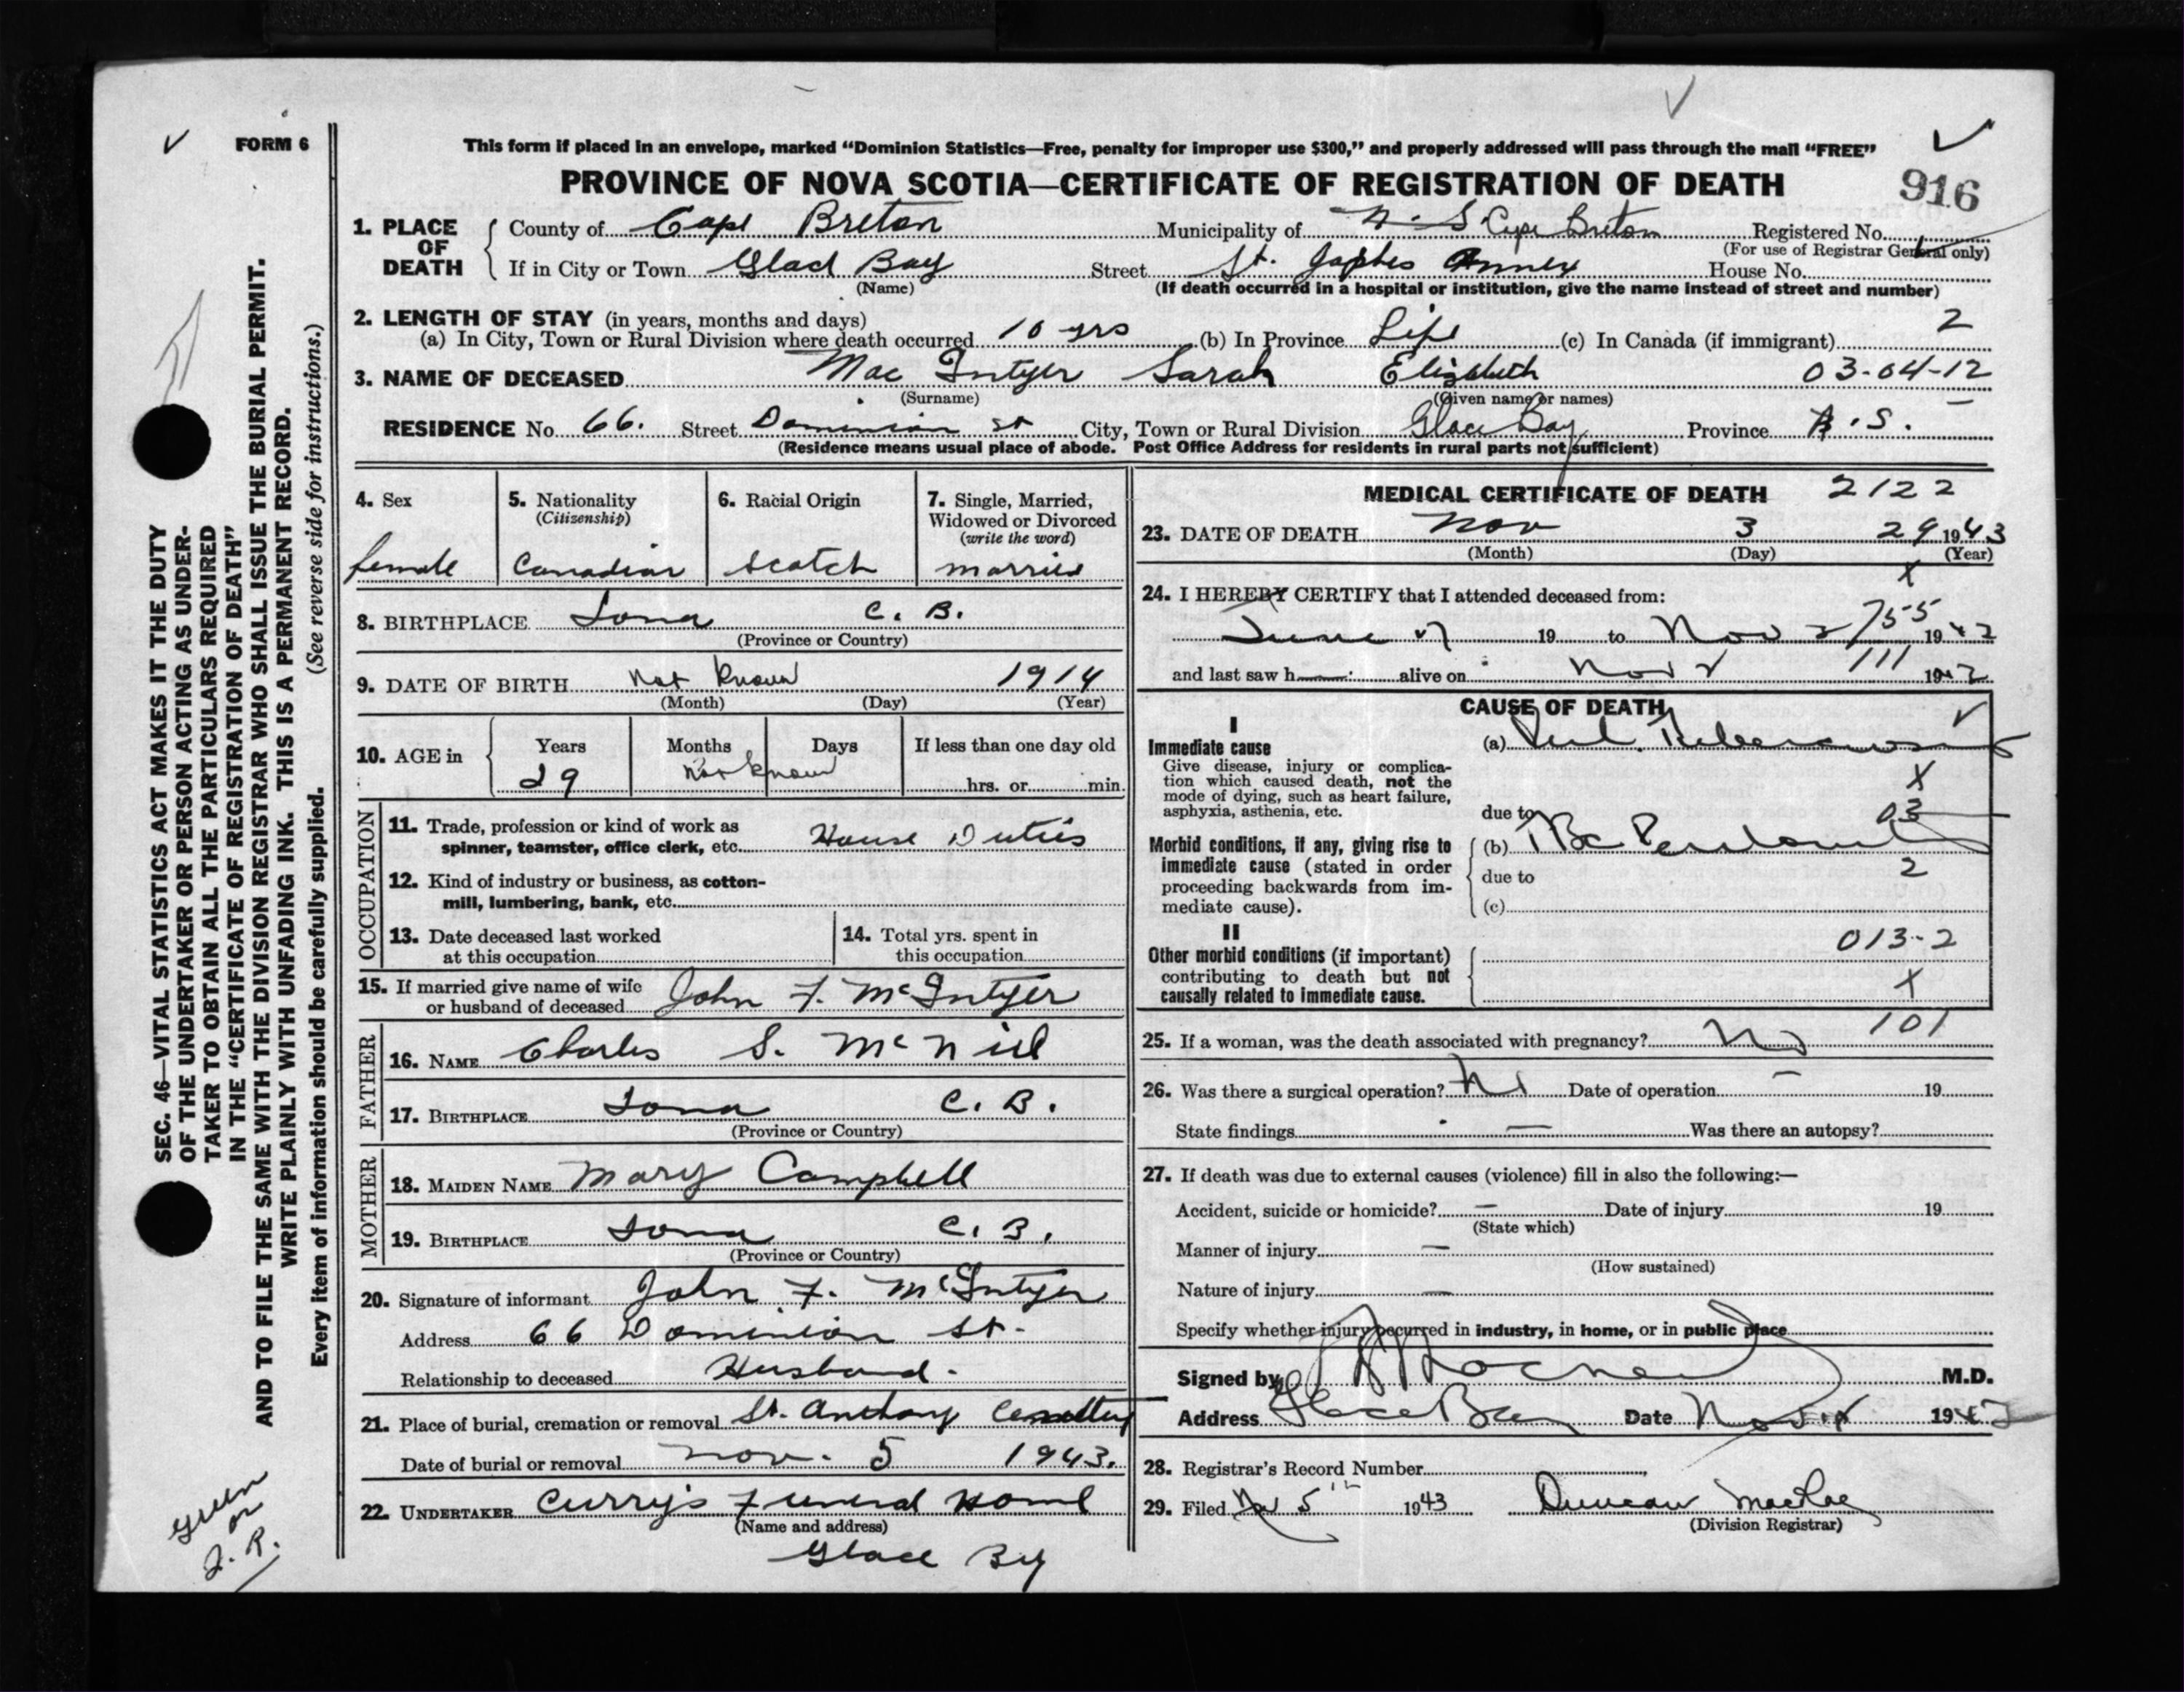 FORM 6
This form if placed in an envelope, marked “Dominion Statistics—Free, penalty for improper use $300,” and properly addressed will pass through the mail “FREE”
PROVINCE OF NOVA SCOTIA—CERTIFICATE OF REGISTRATION OF DEATH
916
1. PLACE OF DEATH
County of Cape Breton Municipality of N.S. Cape Breton Registered No.
(For use of Registrar General only)
If in City or Town Glace Bay Street St. Annex House No.
(Name) (If death occurred in a hospital or institution, give the name instead of street and number)
2. LENGTH OF STAY (in years, months and days) 2
(a) In City, Town or Rural Division where death occurred 10 yrs (b) In Province Life (c) In Canada (if immigrant)
3. NAME OF DECEASED Mac Intyer Sarah Elizabeth 03-04-12
(Surname) (Given name or names)
RESIDENCE No. 66. Street Dominion St City, Town or Rural Division Glace Bay Province N.S.
(Residence means usual place of abode. Post Office Address for residents in rural parts not sufficient)
4. Sex
female
5. Nationality
(Citizenship)
Canadian
6. Racial Origin
Scotch
7. Single, Married,
Widowed or Divorced
(write the word)
married
8. BIRTHPLACE Iona C. B.
(Province or Country)
9. DATE OF BIRTH Not Known 1914
(Month) (Day) (Year)
10. AGE in
Years Months Days If less than one day old
29 Not Known hrs. or min.
OCCUPATION
11. Trade, profession or kind of work as
spinner, teamster, office clerk, etc. House Duties
12. Kind of industry or business, as cotton-
mill, lumbering, bank, etc.
13. Date deceased last worked
at this occupation
14. Total yrs. spent in
this occupation
15. If married give name of wife
or husband of deceased John F. McIntyer
FATHER
16. NAME Charles S. McNiel
17. BIRTHPLACE Iona C. B.
(Province or Country)
MOTHER
18. MAIDEN NAME Mary Campbell
19. BIRTHPLACE Iona C. B.
(Province or Country)
20. Signature of informant John F. McIntyer
Address 66 Dominion St.
Relationship to deceased Husband.
21. Place of burial, cremation or removal St. Anthony Cemettery
Date of burial or removal Nov. 5 1943.
22. UNDERTAKER Curry's Funeral Home
(Name and address)
Glace By
MEDICAL CERTIFICATE OF DEATH 2122
23. DATE OF DEATH Nov 3 29 1943
(Month) (Day) (Year)
X
24. I HEREBY CERTIFY that I attended deceased from:
June 19 to Nov 2 755 19
and last saw h alive on Nov 2 111 19
CAUSE OF DEATH
I
Immediate cause
Give disease, injury or complica-
tion which caused death, not the
mode of dying, such as heart failure,
asphyxia, asthenia, etc.
(a)
X
due to 03
Morbid conditions, if any, giving rise to
immediate cause (stated in order
proceeding backwards from im-
mediate cause).
(b)
due to 2
(c)
II
Other morbid conditions (if important)
contributing to death but not
causally related to immediate cause.
013-2
X
25. If a woman, was the death associated with pregnancy? No 101
26. Was there a surgical operation? No Date of operation — 19
State findings — Was there an autopsy?
27. If death was due to external causes (violence) fill in also the following:—
Accident, suicide or homicide? — Date of injury 19
(State which)
Manner of injury —
(How sustained)
Nature of injury —
Specify whether injury occurred in industry, in home, or in public place
Signed by M.D.
Address Glace Bay Date Nov 19
28. Registrar's Record Number
29. Filed Nov 5th 1943 Duncan MacRae
(Division Registrar)
SEC. 46—VITAL STATISTICS ACT MAKES IT THE DUTY
OF THE UNDERTAKER OR PERSON ACTING AS UNDER-
TAKER TO OBTAIN ALL THE PARTICULARS REQUIRED
IN THE “CERTIFICATE OF REGISTRATION OF DEATH”
AND TO FILE THE SAME WITH THE DIVISION REGISTRAR WHO SHALL ISSUE THE BURIAL PERMIT.
WRITE PLAINLY WITH UNFADING INK. THIS IS A PERMANENT RECORD.
Every item of information should be carefully supplied. (See reverse side for instructions.)
green
or